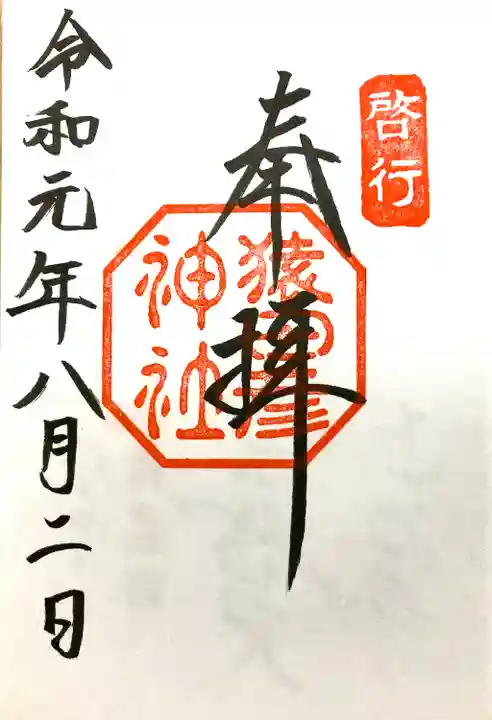 啓行
奉拝
猿田彦
神社
令和元年八月二日